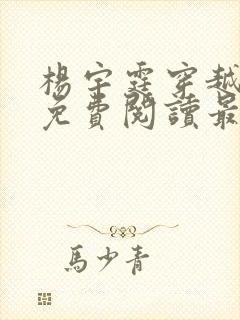 楊宇霆穿越
免費閱讀最
馬少青